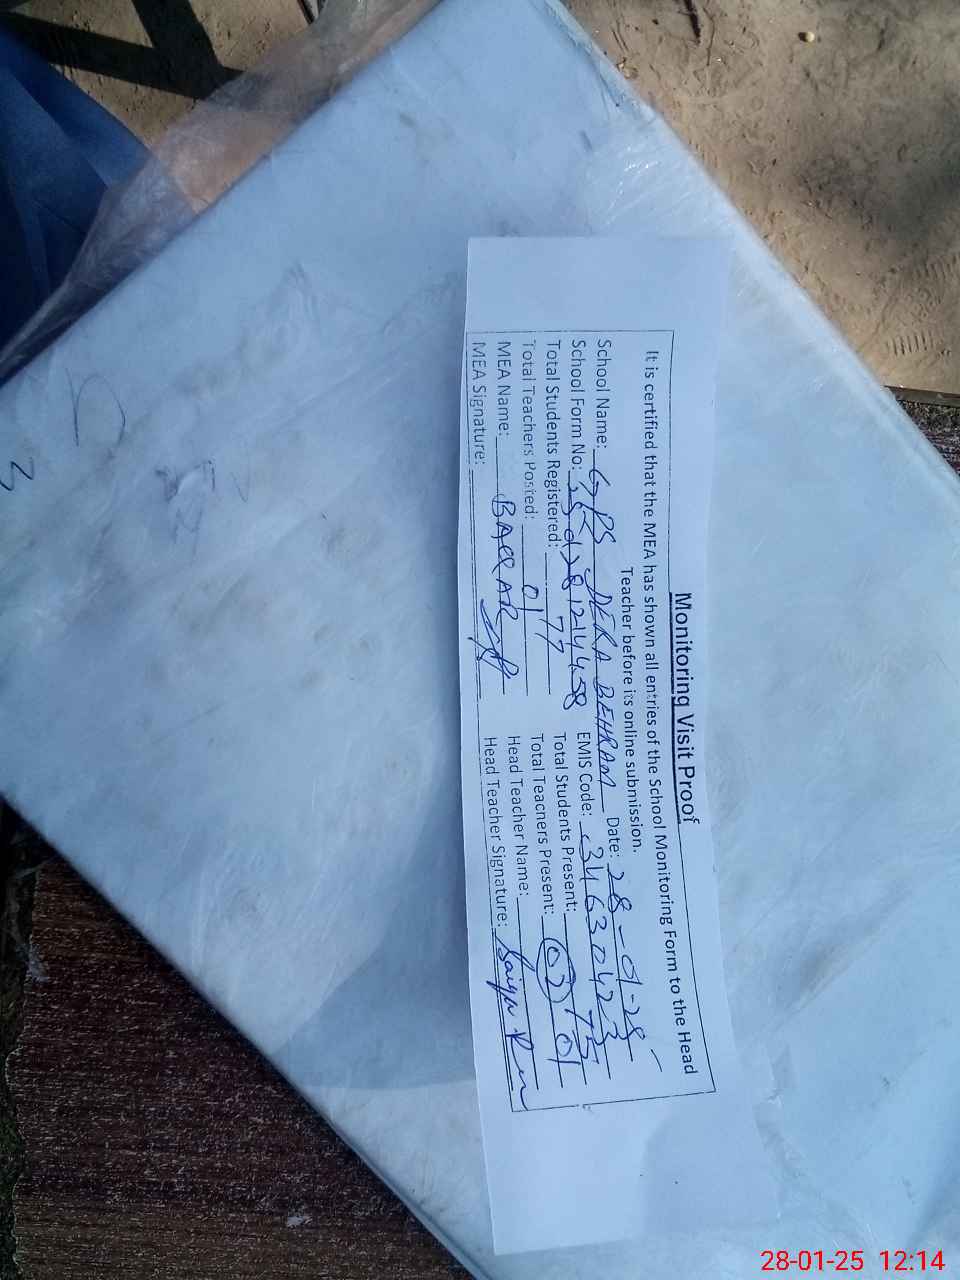 Monitoring Visit Proof
It is certified that the MEA has shown all entries of the School Monitoring Form to the Head
Teacher before its online submission.
School Name: GPS DERA BEHRAM Date: 28-01-25
School Form No: EMIS Code: 34630423
Total Students Registered: 77 Total Students Present: 75
Total Teachers Posted: 01 Total Teachers Present: 03 01
MEA Name: BAQAR Head Teacher Name:
MEA Signature: Head Teacher Signature:
28-01-25 12:14